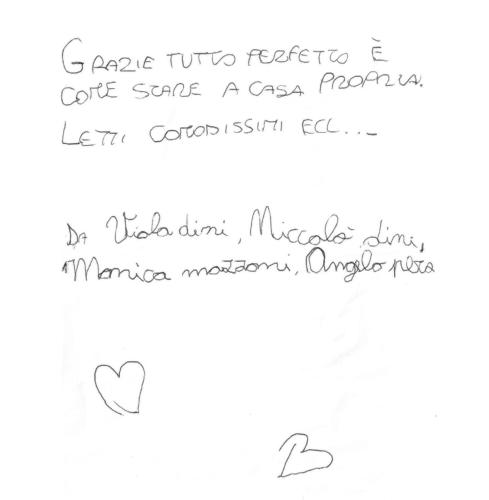 GRAZIE TUTTO PERFETTO È
COME STARE A CASA PROPRIA.
LETTI COMODISSIMI ECC...
DA Viola dini, Niccolò dini,
Monica mazzoni, Angelo